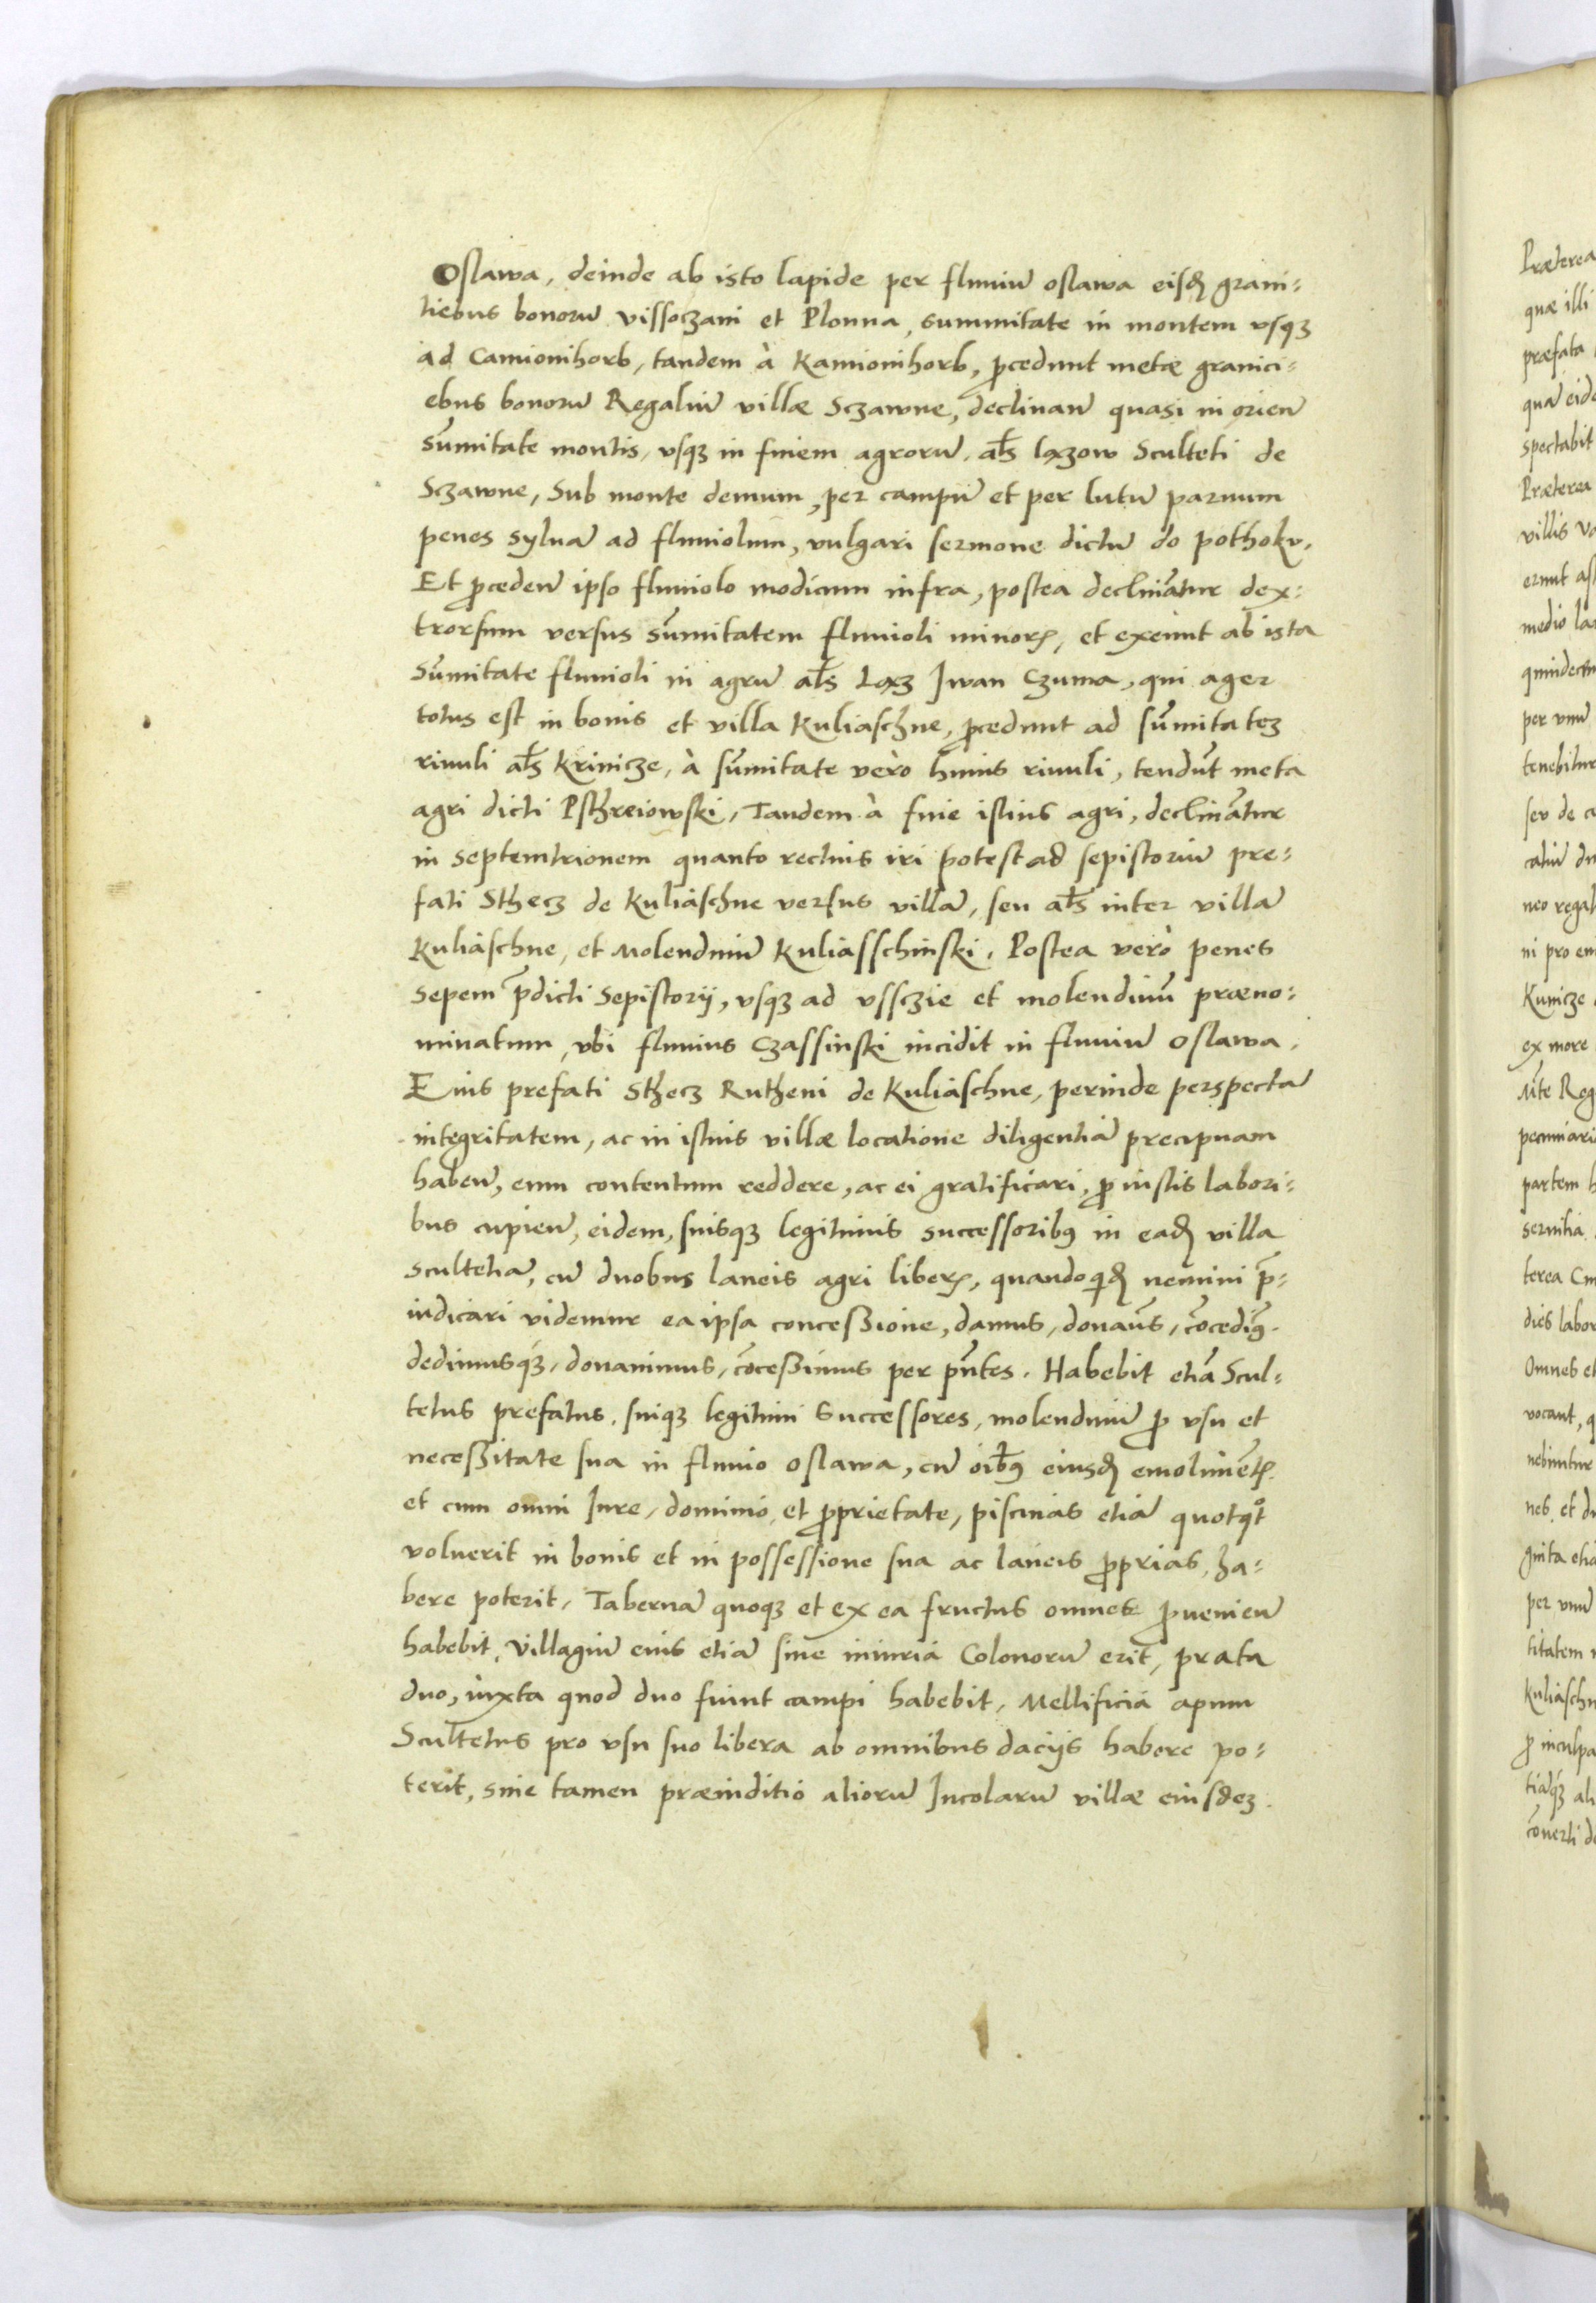 Oslawa, deinde ab isto lapide per fluuiu͂ oslawa eisd͂ grani:
tiebus bonoru͂ vissoczani et Plonna, summitate in montem vsqȝ
ad Camionihorb, tandem à Kamionihorb, ꝓcedunt metæ granici:
ebus bonoru͂ Regaliu͂ villæ Sczawne, declinan͂ quasi in orien͂
su͂mitate montis, vsqȝ in finem agroru͂, al͂s lazow Sculteti de
Sczawne, Sub monte demum, per campu͂ et per lutu͂ paruum
penes sylua͂ ad fluuiolum, vulgari sermone dictu͂ do pothokv.
Et ꝓceden͂ ipso fluuiolo modicum infra, postea declina͂tur dex:
trorsum versus su͂mitatem fluuioli minorꝭ, et exeunt ab ista
su͂mitate fluuioli in agru͂ al͂s Laz Jwan Czuma, qui ager
totus est in bonis et villa Kuliaschne, ꝓcedunt ad su͂mitateȝ
riuuli al͂s Krinicze, à su͂mitate verò huius riuuli, tendu͂t meta
agri dicti Pschreiowski, Tandem à fine istius agri, declina͂tur
in septemtrionem quanto rectius iri potest ad sepistoriu͂ pre:
fati Sthecz de Kuliaschne versus villa͂, seu al͂s inter villa͂
Kuliaschne, et Molendinu͂ Kuliasschinski. Postea verò penes
sepem p͂dicti sepistorij, vsqȝ ad vssczie et molendinu͂ præno:
minatum, vbi fluuius Czassinski incidit in fluuiu͂ Oslawa.
Eius prefati Sthecz Rutheni de Kuliaschne, perinde perspecta͂
integritatem, ac in istius villæ locatione diligentia͂ precipuam
haben͂, eum contentum reddere, ac ei gratificari, ꝓ iustis labori:
bus cupien͂, eidem, suisqȝ legitimis successoribꝰ in ead͂ villa
scultetia͂, cu͂ duobus laneis agri liberꝭ, quandoqid͂ nemini p͂:
iudicari videmur ea ipsa conceßione, damus, donam͂s, co͂cedimꝰ.
dedimusqȝ, donauimus, co͂ceßimus per pn͂tes. Habebit etia͂ Scul:
tetus prefatus, suiqȝ legitimi successores, molendinu͂ ꝓ vsu et
neceßitate sua in fluuio oslawa, cu͂ oi͂bꝰ eiusd͂ emolime͂tꝭ
et cum omni Jure, dominio, et ꝓprietate, piscinas etia͂ quotqͦt
voluerit in bonis et in possessione sua ac laneis ꝓprias, ha:
bere poterit, Taberna͂ quoqȝ et ex ea fructus omnes ꝓuenien͂
habebit, Villagiu͂ eius etia͂ sine iniuria Colonoru͂ erit, prata
duo, iuxta quod duo fuint campi habebit, Mellificia apum
Scultetus pro vsu suo libera ab omnibus dacijs habere po:
terit, sine tamen præiuditio alioru͂ Jncolaru͂ villæ eiusdeȝ.
Præterea
quæ illi
præfata
qua͂ eide
spectabit
Præterea
villis
erunt
medio
quindecim
per vnu͂
tenebitur
seu de
neo
ni pro
Kunicze
ex more
Reg
partem
seruitia
terea
dies labor
Omnes
vocant,
nebuntur
nes, et
per vnu͂
titatem
Kuliaschn
ꝓ inculpa
co͂uerti